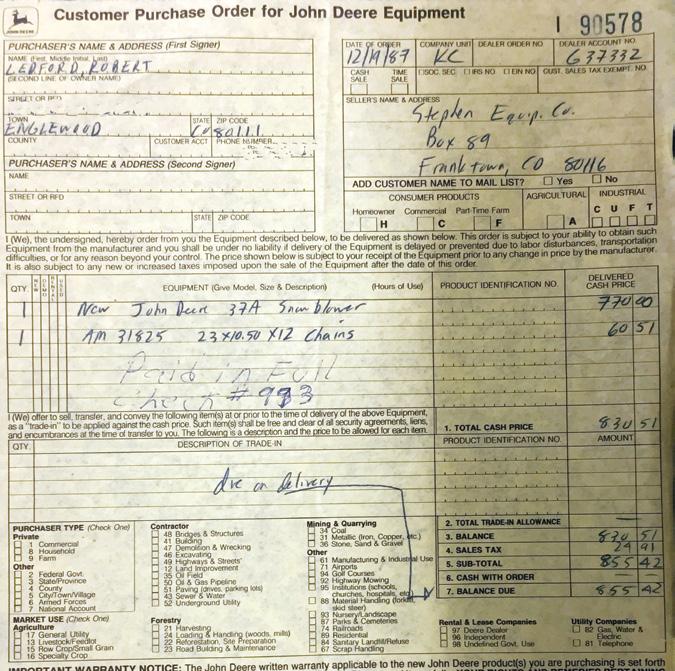 JOHN DEERE
Customer Purchase Order for John Deere Equipment
I 90578
PURCHASER'S NAME & ADDRESS (First Signer)
NAME (First, Middle Initial, Last)
LEDFORD, ROBERT
(SECOND LINE OF OWNER NAME)
STREET OR RFD
TOWN STATE ZIP CODE
ENGLEWOOD CO 80111
COUNTY CUSTOMER ACCT PHONE NUMBER
PURCHASER'S NAME & ADDRESS (Second Signer)
NAME
STREET OR RFD
TOWN STATE ZIP CODE
DATE OF ORDER COMPANY UNIT DEALER ORDER NO DEALER ACCOUNT NO.
12/19/87 KC 637332
CASH SALE TIME SALE SOC. SEC. IRS NO EIN NO CUST. SALES TAX EXEMPT. NO.
SELLER'S NAME & ADDRESS
Stephen Equip. Co.
Box 89
Franktown, CO 80116
ADD CUSTOMER NAME TO MAIL LIST? Yes No
CONSUMER PRODUCTS AGRICULTURAL INDUSTRIAL
Homeowner Commercial Part-Time Farm C U F T
H C F A
I (We), the undersigned, hereby order from you the Equipment described below, to be delivered as shown below. This order is subject to your ability to obtain such
Equipment from the manufacturer and you shall be under no liability if delivery of the Equipment is delayed or prevented due to labor disturbances, transportation
difficulties, or for any reason beyond your control. The price shown below is subject to your receipt of the Equipment prior to any change in price by the manufacturer.
It is also subject to any new or increased taxes imposed upon the sale of the Equipment after the date of this order.
QTY. NEW DEMO RENTAL USED EQUIPMENT (Give Model, Size & Description) (Hours of Use) PRODUCT IDENTIFICATION NO. DELIVERED CASH PRICE
1 New John Deere 37A Snowblower 770 00
1 AM 31825 23x10.50 x12 Chains 60 51
Paid in Full
Check # 993
I (We) offer to sell, transfer, and convey the following item(s) at or prior to the time of delivery of the above Equipment,
as a "trade-in" to be applied against the cash price. Such item(s) shall be free and clear of all security agreements, liens,
and encumbrances at the time of transfer to you. The following is a description and the price to be allowed for each item.
1. TOTAL CASH PRICE 830 51
QTY. DESCRIPTION OF TRADE-IN PRODUCT IDENTIFICATION NO. AMOUNT
due on delivery
2. TOTAL TRADE-IN ALLOWANCE —
3. BALANCE 830 51
4. SALES TAX 24 91
5. SUB-TOTAL 855 42
6. CASH WITH ORDER —
7. BALANCE DUE 855 42
PURCHASER TYPE (Check One)
Private
1 Commercial
8 Household
9 Farm
Other
2 Federal Govt.
3 State/Province
4 County
5 City/Town/Village
6 Armed Forces
7 National Account
MARKET USE (Check One)
Agriculture
17 General Utility
13 Livestock/Feedlot
15 Row Crop/Small Grain
16 Specialty Crop
Contractor
48 Bridges & Structures
41 Building
47 Demolition & Wrecking
46 Excavating
49 Highways & Streets
12 Land Improvement
35 Oil Field
50 Oil & Gas Pipeline
51 Paving (drives, parking lots)
43 Sewer & Water
52 Underground Utility
Forestry
21 Harvesting
24 Loading & Handling (woods, mills)
22 Reforestation, Site Preparation
23 Road Building & Maintenance
Mining & Quarrying
34 Coal
31 Metallic (Iron, Copper, etc.)
36 Stone, Sand & Gravel
Other
61 Manufacturing & Industrial Use
71 Airports
94 Golf Courses
92 Highway Mowing
95 Institutions (schools,
churches, hospitals, etc.)
88 Material Handling (forklift,
skid steer)
93 Nursery/Landscape
87 Parks & Cemeteries
74 Railroads
89 Residential
84 Sanitary Landfill/Refuse
67 Scrap Handling
Rental & Lease Companies
97 Deere Dealer
96 Independent
98 Undefined Govt. Use
Utility Companies
82 Gas, Water &
Electric
81 Telephone
IMPORTANT WARRANTY NOTICE: The John Deere written warranty applicable to the new John Deere product(s) you are purchasing is set forth